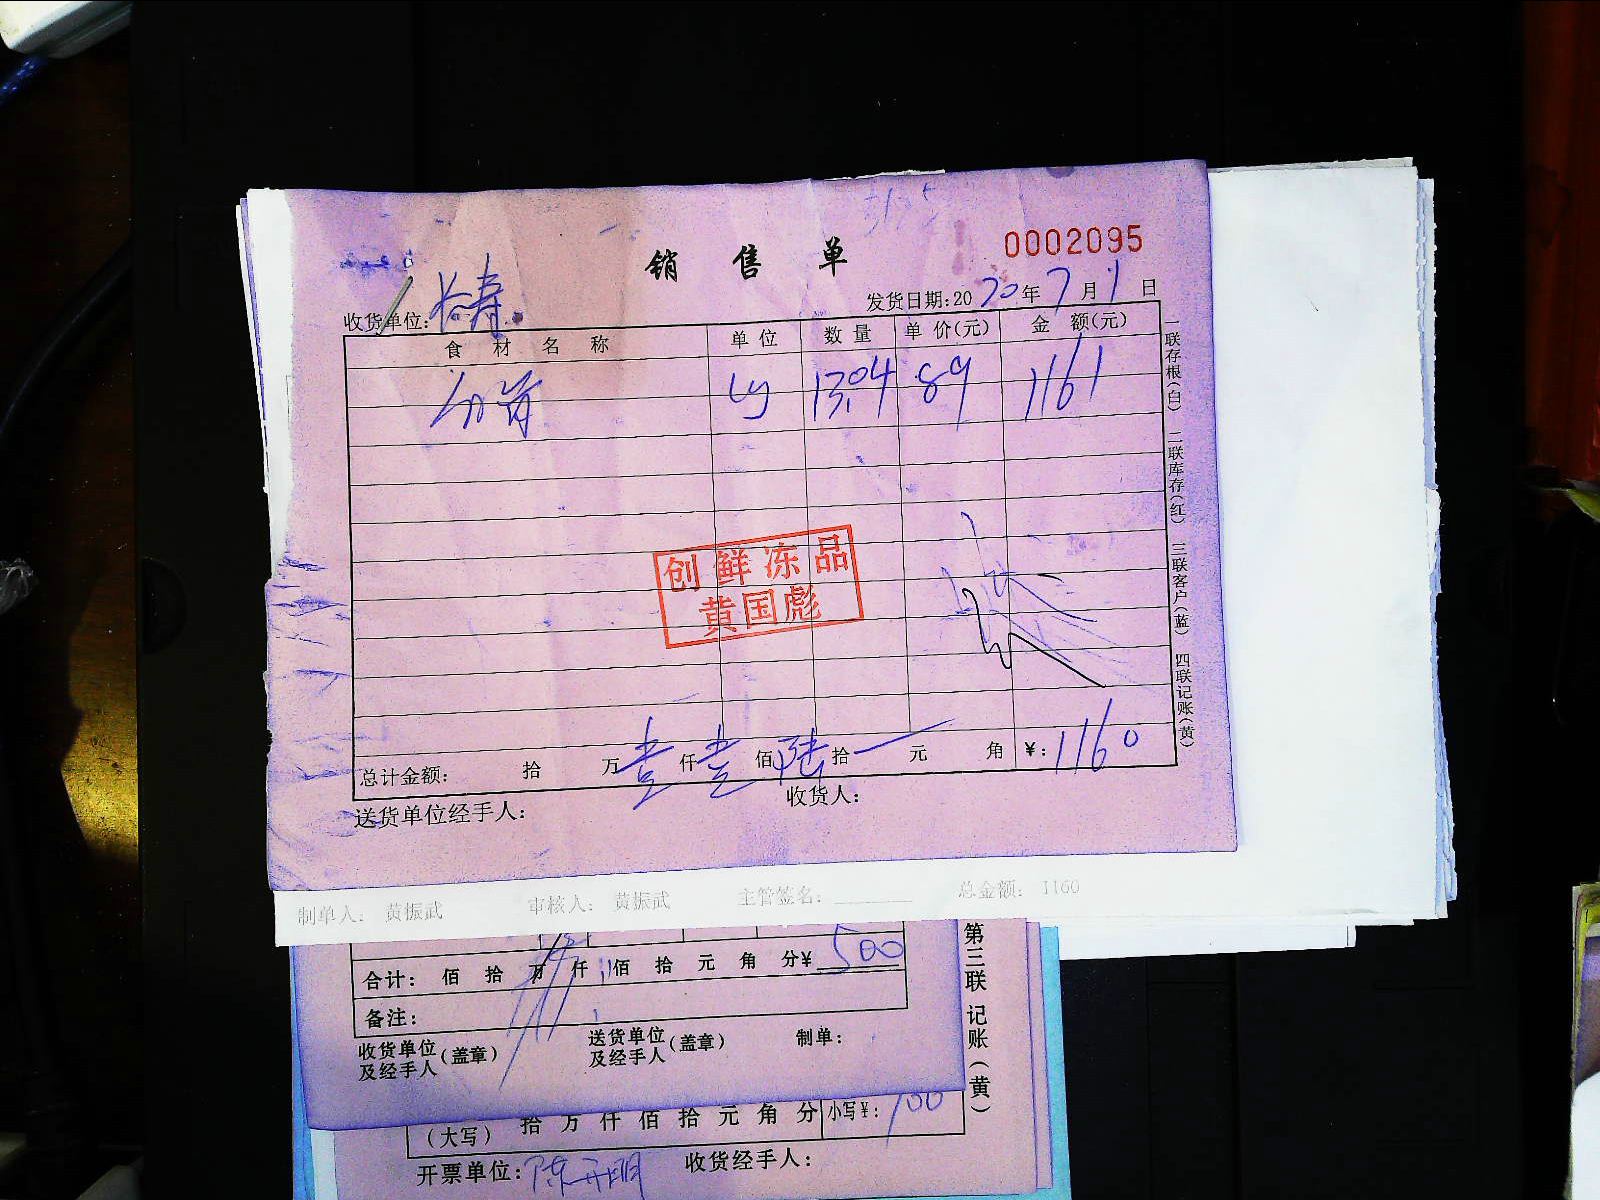 销 售 单
0002095
发货日期:2020年7月1日
收货单位:
食 材 名 称 单 位 数 量 单 价(元) 金 额(元)
13.04 89 1161
创鲜冻品
黄国彪
总计金额: 拾 万壹仟壹佰陆拾一元 角 ¥:1160
送货单位经手人: 收货人:
一联存根(白) 二联库存(红) 三联客户(蓝) 四联记账(黄)
制单人: 黄振武 审核人: 黄振武 主管签名: 总金额: 1160
合计: 佰 拾 万 仟 佰 拾 元 角 分¥500
备注:
收货单位及经手人(盖章) 送货单位及经手人(盖章) 制单:
第三联 记账(黄)
(大写) 拾 万 仟 佰 拾 元 角 分 小写¥:700
开票单位:陈开明 收货经手人: